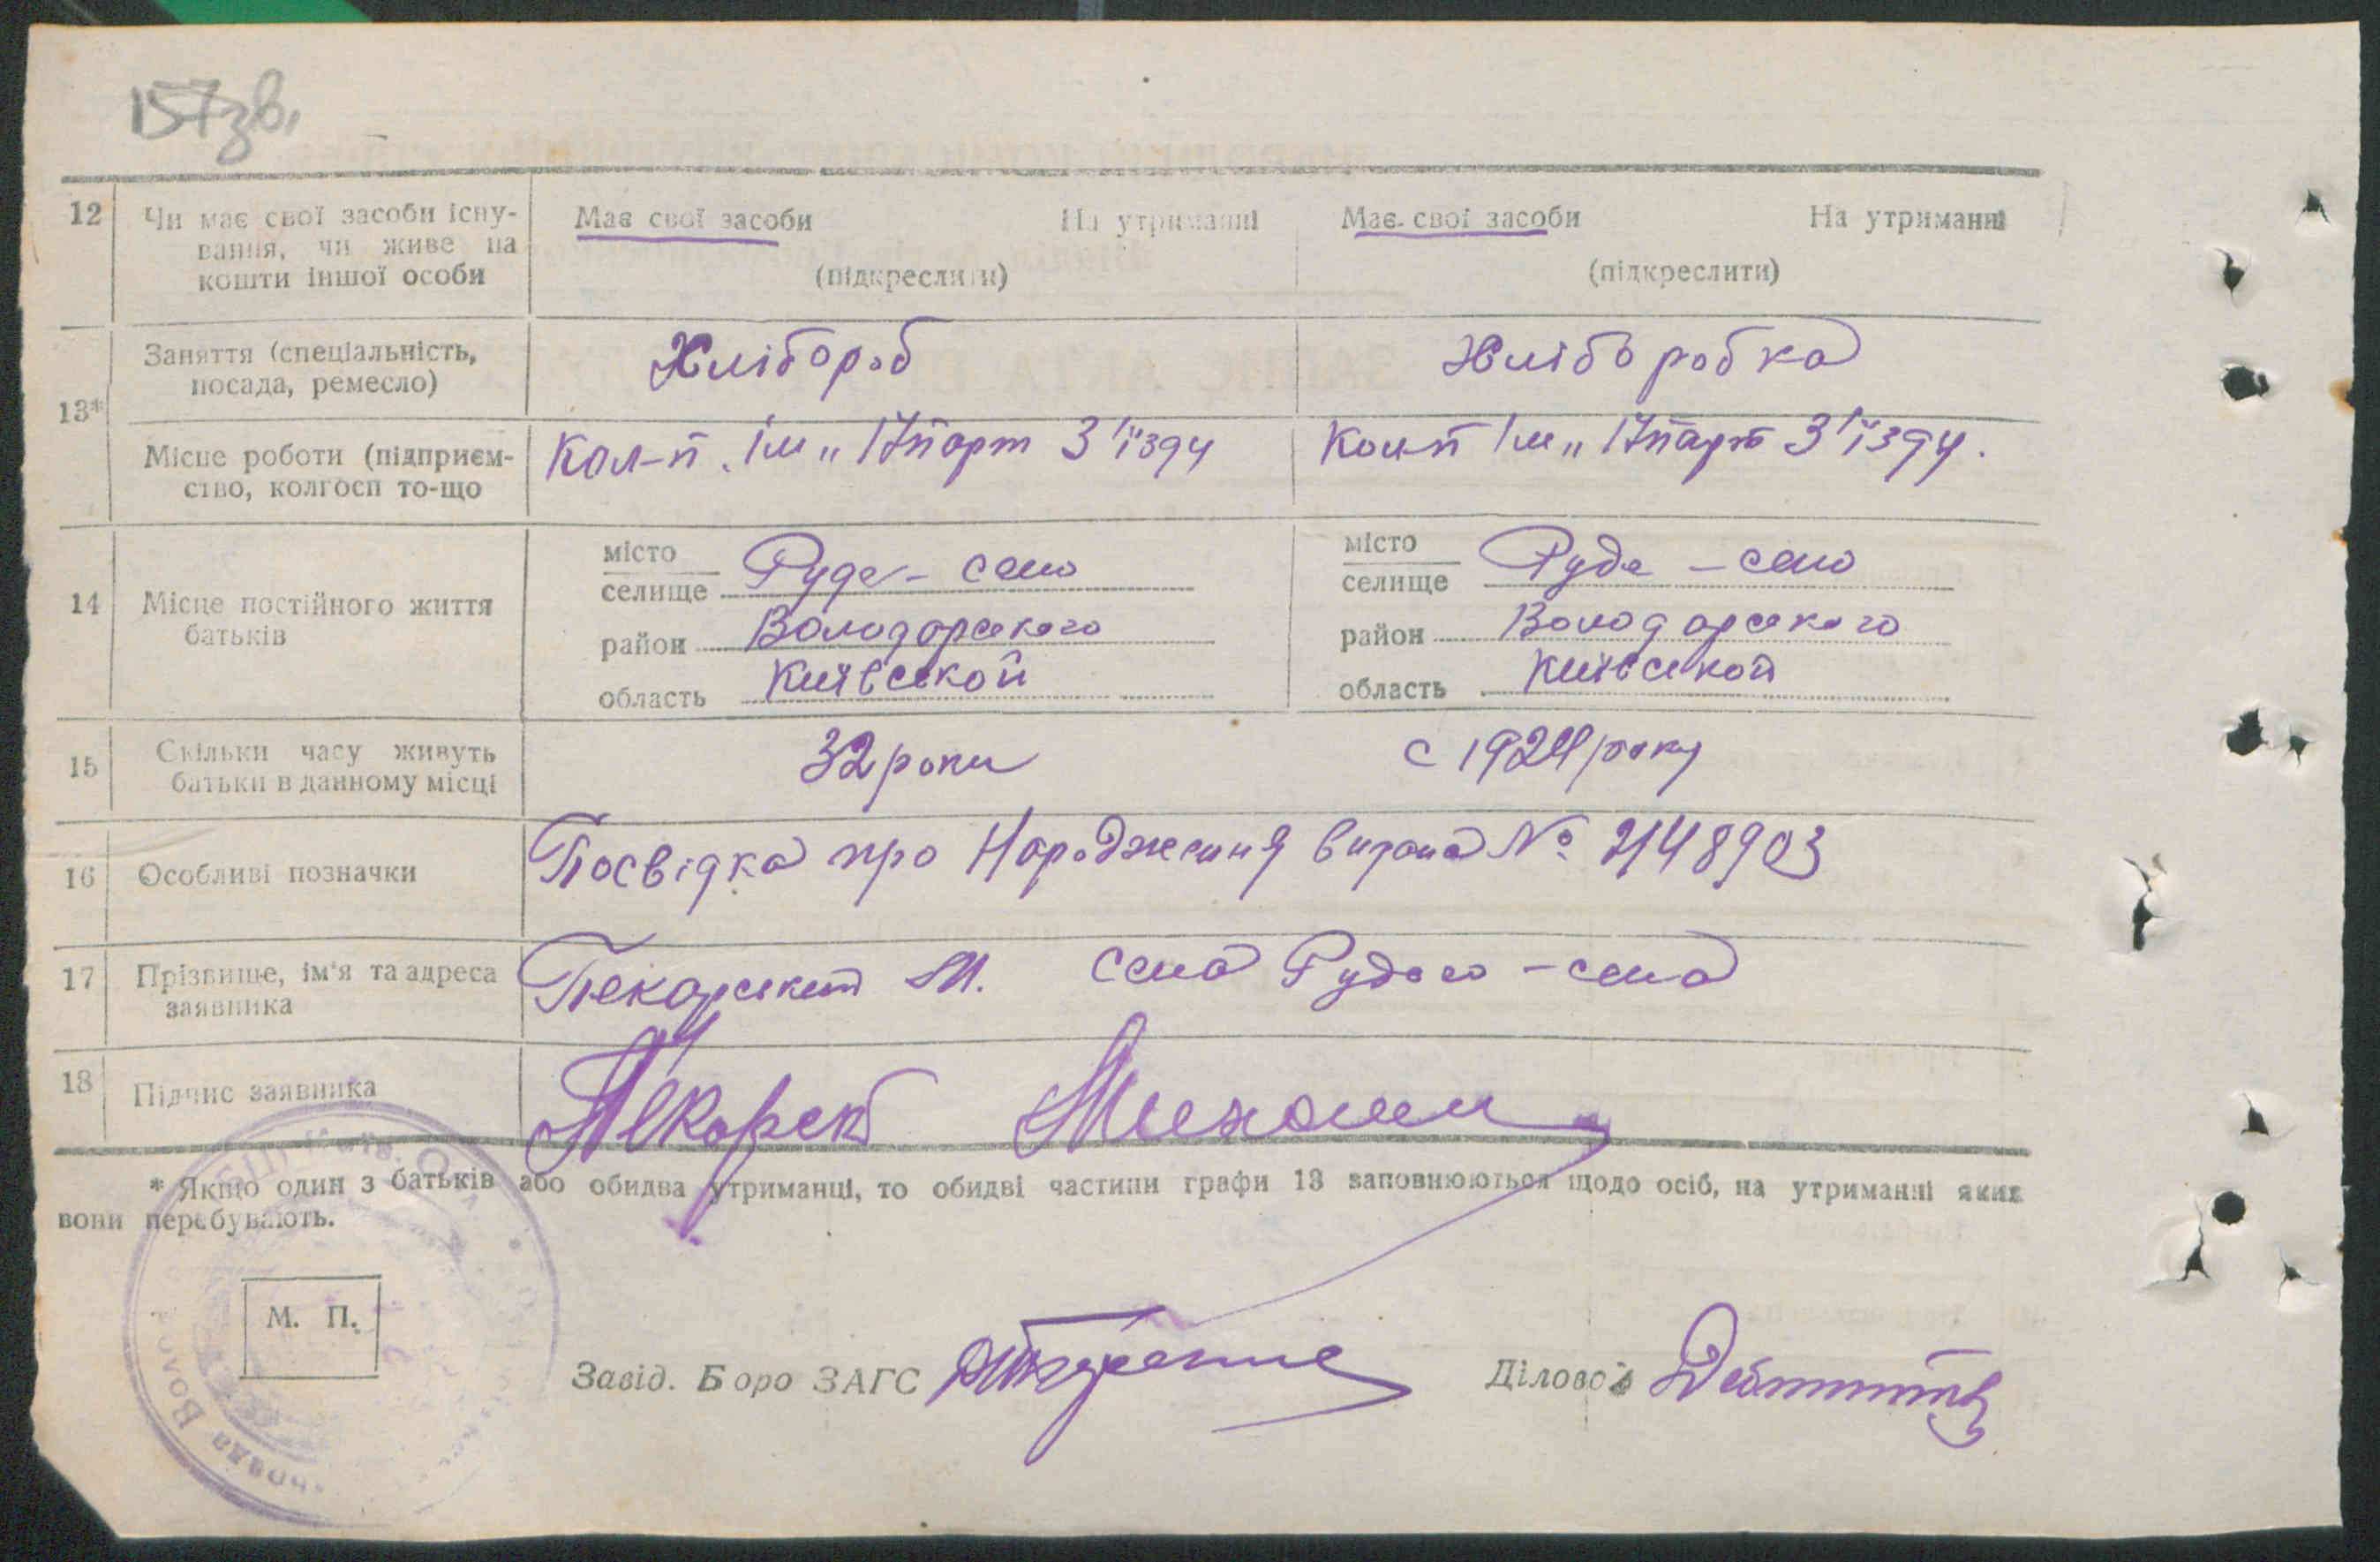 157зв.
12 Чи має свої засоби існу-
вання, чи живе на
кошти іншої особи
Має свої засоби На утриманні
(підкреслити)
Має свої засоби На утриманні
(підкреслити)
13*
Заняття (спеціальність,
посада, ремесло)
Хлібороб
Хліборобка
Місце роботи (підприєм-
ство, колгосп то-що
Кол-п. Ім „ 17 парт З'ї
Кол-п Ім „ 17 парт З'ї
14 Місце постійного життя
батьків
місто
селище Руде - село
район Володарского
область Київской
місто
селище Руде - село
район Володарского
область Київской
15 Скільки часу живуть
батьки в данному місці
32 роки
с 1924 року
16 Особливі позначки
Посвідка про Народження видана № 2148903
17 Прізвище, ім'я та адреса
заявника
Пекарский М. села Рудого - села
18 Підпис заявника
Пекарск
* Якщо один з батьків або обидва утриманці, то обидві частини графи 13 заповнюються щодо осіб, на утриманні яких
вони перебувають.
М. П.
Завід. Бюро ЗАГС
Діловод